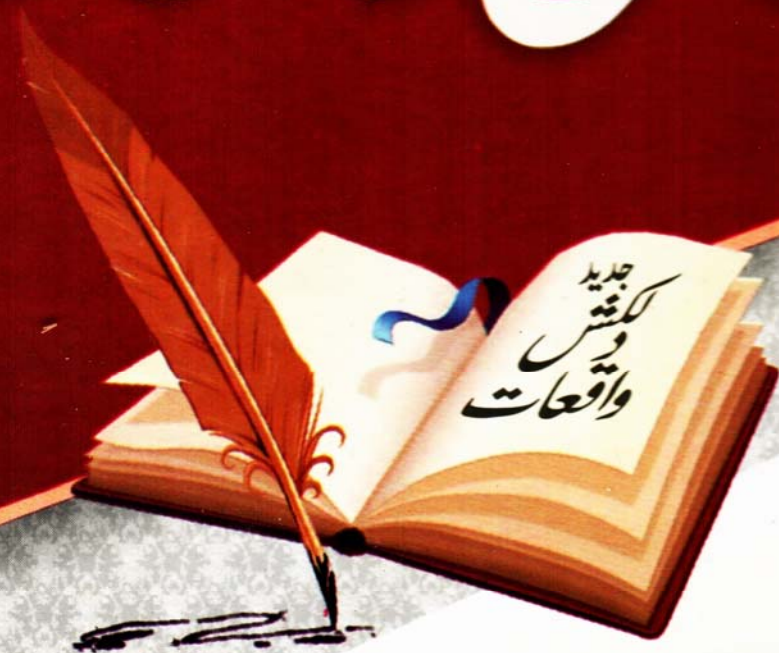 جدید
دلکش
واقعات